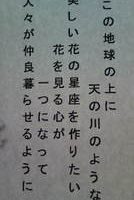 この地球の上に
天の川のような
美しい花の星座を作りたい
花を見る心が
一つになって
人々が仲良暮らせるように